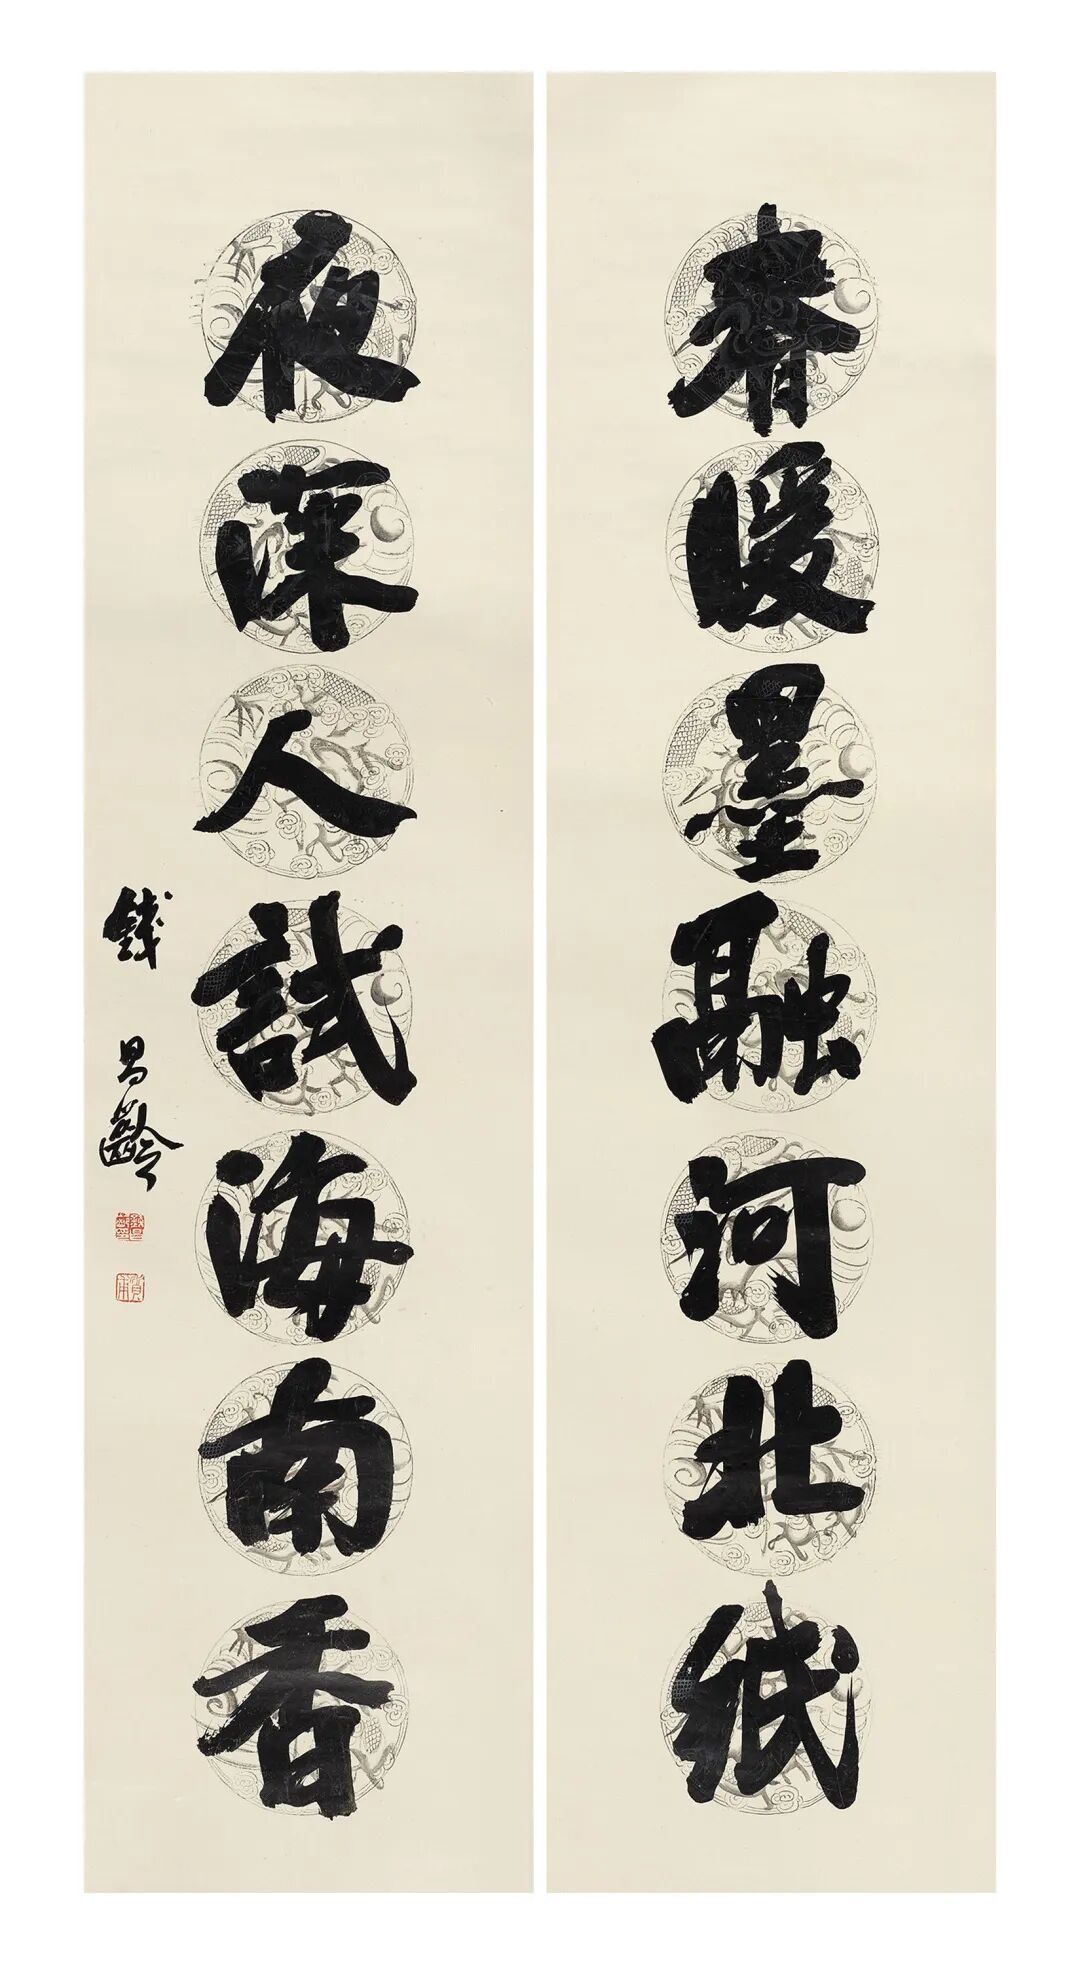 春暖墨融河北纸
夜深人試海南香
錢昌齡